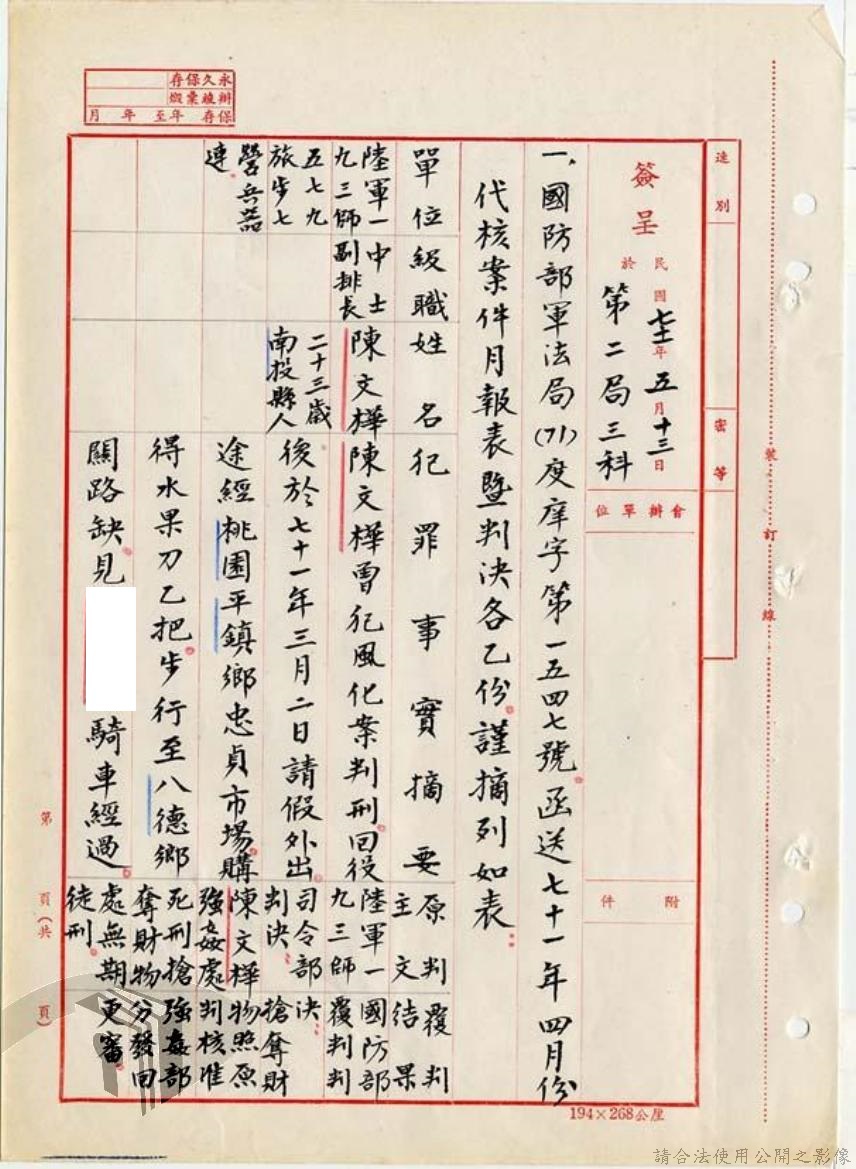 永久保存
辦竣彙燬
保存 年至 年 月
速別
密等
裝訂線
簽呈
民國七十一年五月十三日
於第二局三科
會辦單位
附件
一、國防部軍法局(71)度庠字第一五四七號函送七十一年四月份
代核案件月報表暨判決各乙份，謹摘列如表：
單位
級職
姓名
犯罪事實摘要
原判主文
覆判結果
陸軍一
九三師
五七九
旅步七
營兵器
連。
中士
副排長
陳文樺
二十三歲
南投縣人
陳文樺曾犯風化案判刑，回役
後於七十一年三月二日請假外出。
途經桃園平鎮鄉忠貞市場，購
得水果刀乙把。步行至八德鄉
關路缺見
騎車經過。
陸軍一
九三師
司令部
判決：
陳文樺
強姦處
死刑，搶
奪財物
處無期
徒刑。
國防部
覆判判
決：
搶奪財
物照原
判核准
強姦部
分發回
更審。
第 頁(共 頁)
194×268公厘
請合法使用公開之影像